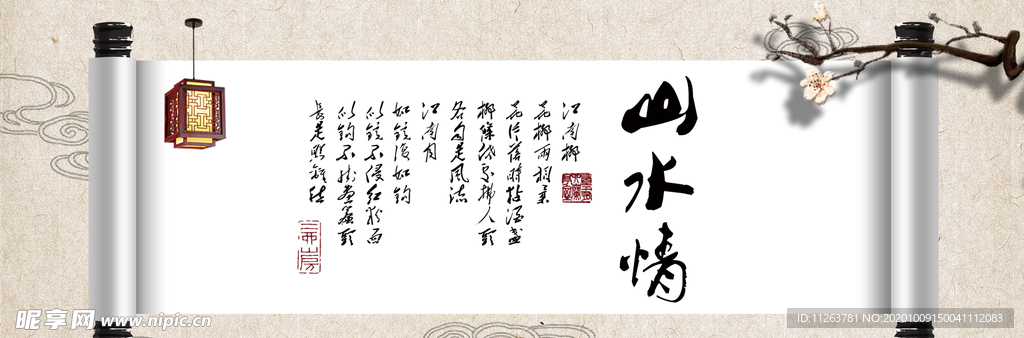 山水情
江南柳
花柳兩相柔
花片落時粘酒盞
柳條低處拂人頭
各自是風流
江南月
如鏡復如鈎
似鏡不侵紅粉面
似鈎不掛畫簾頭
長是照離愁
昵享网 www.nipic.cn
ID:11263781 NO:20201009150041112083